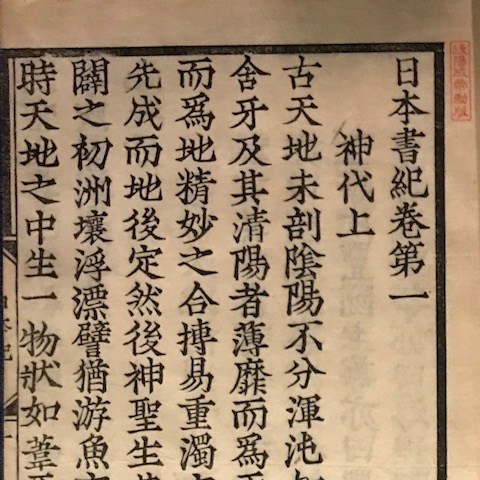 後陽成帝勅版
日本書紀卷第一
神代上
古天地未剖陰陽不分渾沌
含牙及其清陽者薄靡而爲
而爲地精妙之合摶易重濁
先成而地後定然後神聖生
闢之初洲壤浮漂譬猶游魚
時天地之中生一物狀如葦